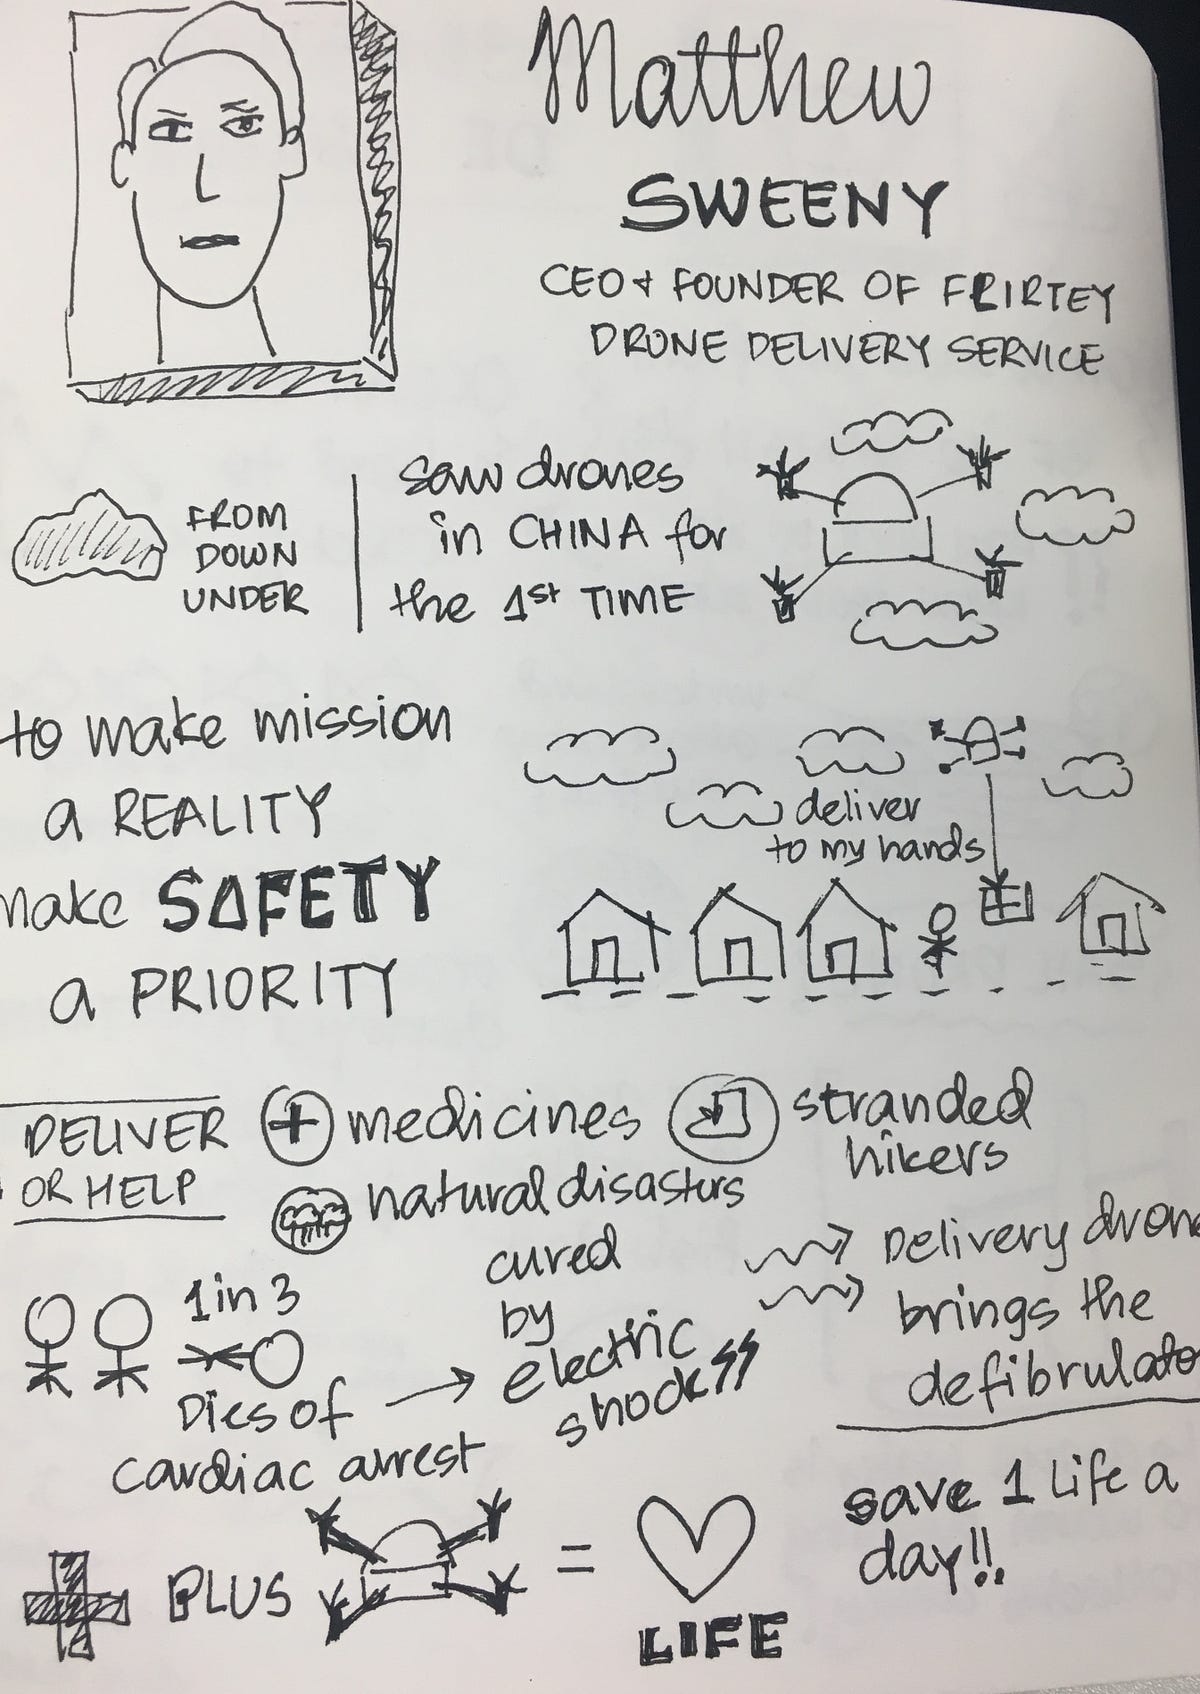 Matthew
SWEENY
CEO & FOUNDER OF FLIRTEY
DRONE DELIVERY SERVICE
FROM
DOWN
UNDER
saw drones
in CHINA for
the 1st TIME
to make mission
a REALITY
make SAFETY
a PRIORITY
deliver
to my hands
DELIVER
OR HELP
medicines
stranded
hikers
natural disasters
1 in 3
Dies of
cardiac arrest
cured
by
electric
shock
Delivery drone
brings the
defibrulator
save 1 Life a
day!!
PLUS
=
LIFE